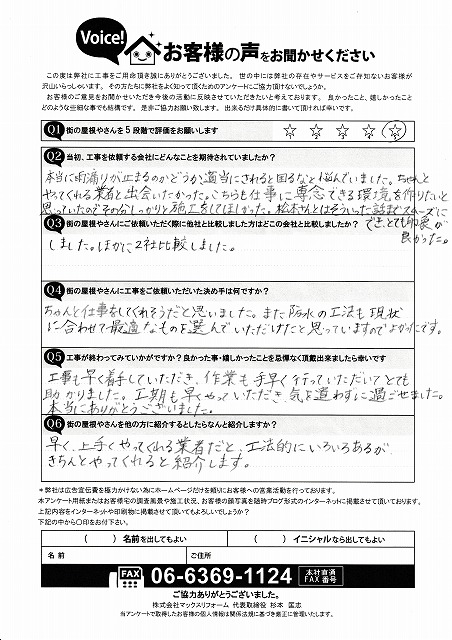 Voice!
お客様の声をお聞かせください
この度は弊社に工事をご用命頂き誠にありがとうございました。世の中には弊社の存在やサービスをご存知ないお客様が
沢山いらっしゃいます。その方たちに弊社をよく知って頂くためのアンケートにご協力頂けないでしょうか。
お客様のご意見をお聞かせいただき今後の活動に反映させていただきたいと考えております。良かったこと、嬉しかったこと
どのような些細な事でも結構です。是非ご協力お願い致します。出来るだけ具体的に書いて頂ければ幸いです。
Q1 街の屋根やさんを5段階で評価をお願いします
☆ ☆ ☆ ☆ ☆
Q2 当初、工事を依頼する会社にどんなことを期待されていましたか?
本当に雨漏りが止まるのかどうか適当にされると困るなと悩んでいました。ちゃんと
やってくれる業者と出会いたかった。こちらも仕事に専念できる環境を作りたいと
思っていたのでその分しっかりと施工をしてほしかった。松本さんとはそういった話までスムーズに
でき、とても印象が
良かった。
Q3 街の屋根やさんにご依頼いただく際に他社と比較しました方はどこの会社と比較しましたか?
しました。ほかに2社比較しました。
Q4 街の屋根やさんに工事をご依頼いただいた決め手は何ですか?
ちゃんと仕事をしてくれそうだと思いました。また防水の工法も現状
に合わせて最適なものを選んでいただけたと思っていますのでよかったです。
Q5 工事が終わってみていかがですか?良かった事・嬉しかったことを忌憚なく頂戴出来ましたら幸いです
工事も早く着手していただき、作業も手早く行っていただいてとても
助かりました。工期も早くやっていただき、気を遣わずに過ごせました。
本当にありがとうございました。
Q6 街の屋根やさんを他の方に紹介するとしたらなんと紹介しますか?
早く、上手くやってくれる業者だと、工法的にいろいろあるが、
きちんとやってくれると紹介します。
*弊社は広告宣伝費を極力かけない為にホームページだけを頼りにお客様への営業活動を行っております。
本アンケート用紙またはお客様宅の調査風景や施工状況、お客様の顔写真を随時ブログ形式のインターネットに掲載させて頂いております。
上記内容をインターネットや印刷物に掲載させて頂いてもよろしいでしょうか?
下記の中から〇印をお付下さい。
( )名前を出してもよい ( )イニシャルなら出してもよい
名前 ご住所
FAX 06-6369-1124 本社直通 FAX番号
ご協力ありがとうございました。
株式会社マックスリフォーム 代表取締役 杉本 匡志
当アンケートで取得したお客様の個人情報は関係法規に基づき厳正に管理いたします。